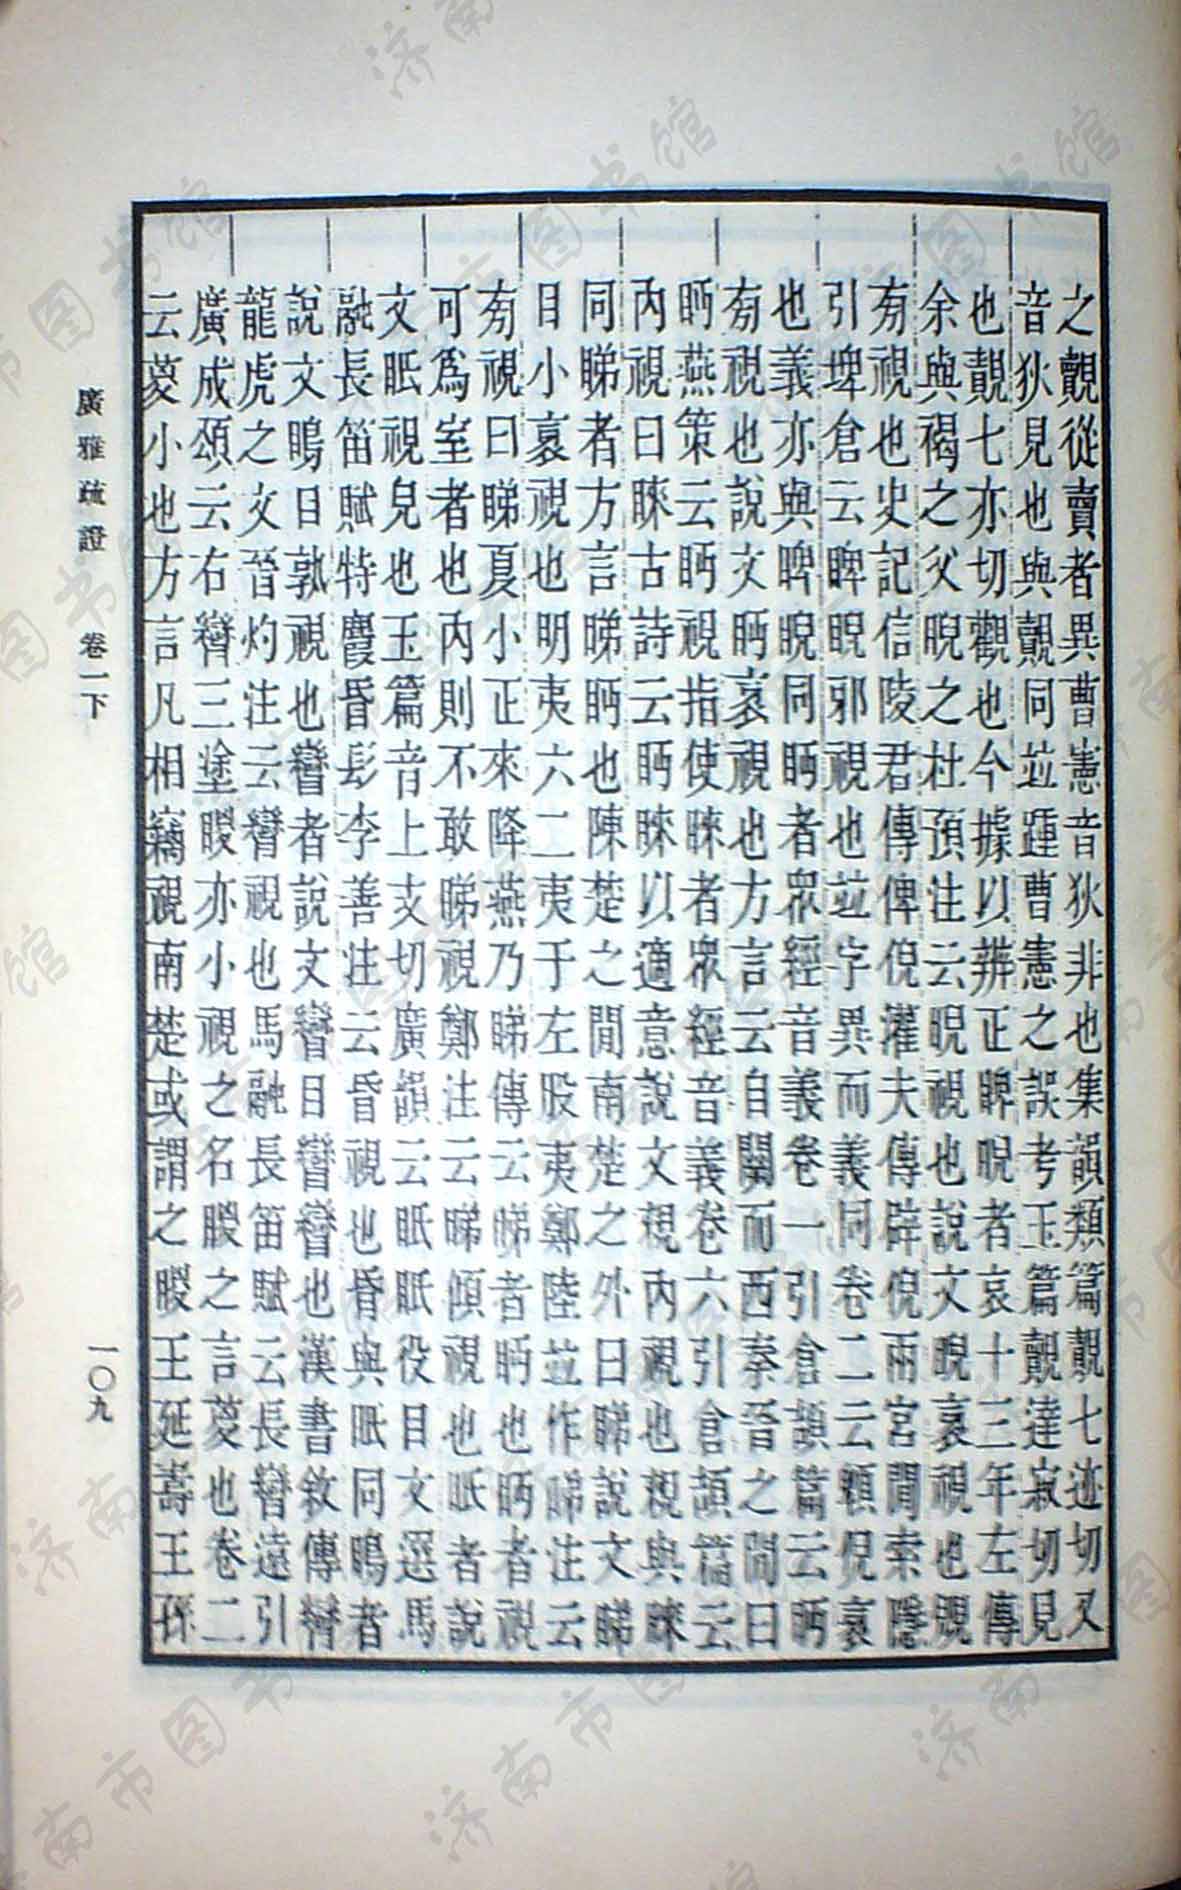 之覿從賣者異曹憲音狄非也集韻類篇覿七迹切又
音狄見也與覿同竝踵曹憲之誤考玉篇覿達寂切見
也覿七亦切觀也今據以辨正睥睨者哀十三年左傳
余與褐之父睨之杜預注云睨視也說文睨衺視也
㫄視也史記信陵君傳俾倪灌夫傳辟倪兩宮閒索隱
引埤倉云睥睨邪視也竝字異而義同卷二云倪衺
也義亦與睥睨同眄者眾經音義卷一引倉頡篇云眄
㫄視也說文眄衺視也方言云自關而西秦晉之閒曰
眄燕策云眄視指使睞者眾經音義卷六引倉頡篇云
內視曰睞古詩云眄睞以適意說文䚅內視也䚅與睞
同睇者方言睇眄也陳楚之閒南楚之外曰睇說文睇
目小衺視也明夷六二夷于左股夷鄭陸竝作睇注云
㫄視曰睇夏小正來降燕乃睇傳云睇者眄也眄者視
可爲室者也內則不敢睇視鄭注云睇傾視也眂者說
文眂視皃也玉篇音上支切廣韻云眂眂役目文選馬
融長笛賦特麚昏髟李善注云昏視也昏與眂同瞗者
說文瞗目孰視也矕者說文矕目矕矕也漢書敘傳矕
龍虎之文晉灼注云矕視也馬融長笛賦云長矕遠引
廣成頌云右矕三塗䁓亦小視之名䁓之言葼也卷二
云葼小也方言凡相竊視南楚或謂之䁓王延壽王孫
廣雅疏證 卷一下
一〇九